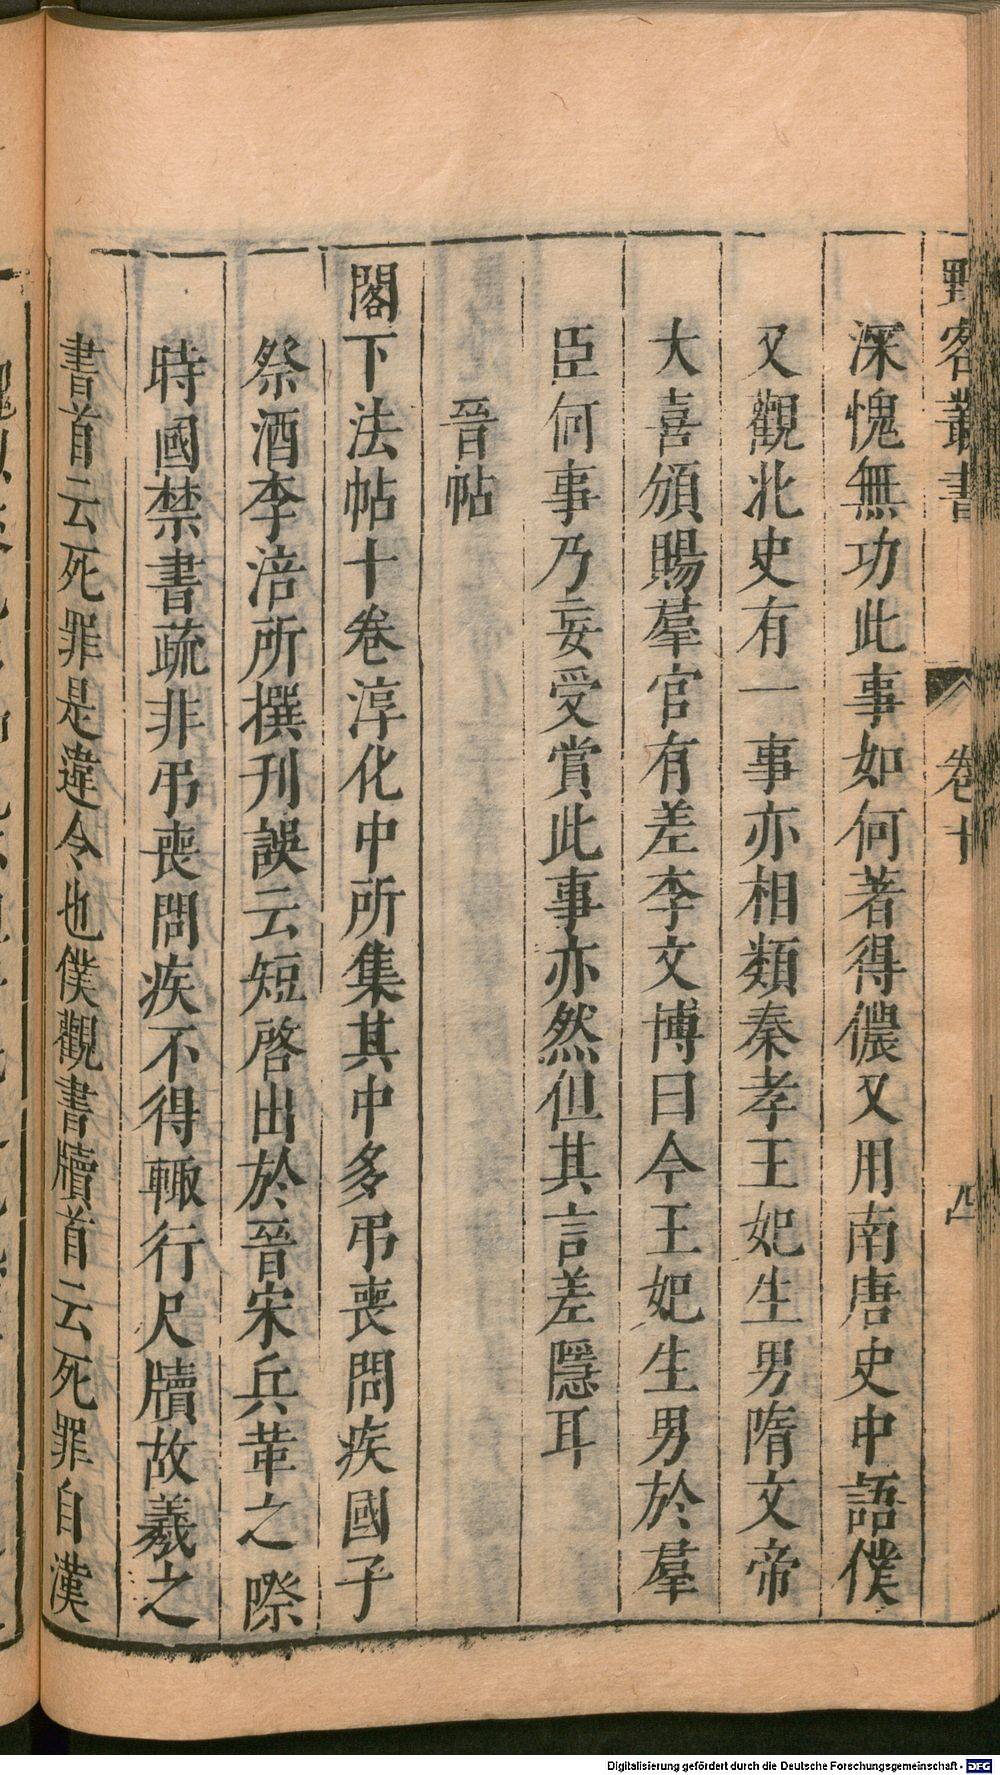 野客叢書
卷十
四
深愧無功此事如何著得儂又用南唐史中語僕
又觀北史有一事亦相類秦孝王妃生男隋文帝
大喜頒賜羣官有差李文博曰今王妃生男於羣
臣何事乃妄受賞此事亦然但其言差隱耳
晉帖
閣下法帖十卷淳化中所集其中多弔喪問疾國子
祭酒李涪所撰刊誤云短啓出於晉宋兵革之際
時國禁書疏非弔喪問疾不得輙行尺牘故羲之
書首云死罪是違令也僕觀書牘首云死罪自漢
Digitalisierung gefördert durch die Deutsche Forschungsgemeinschaft - DFG